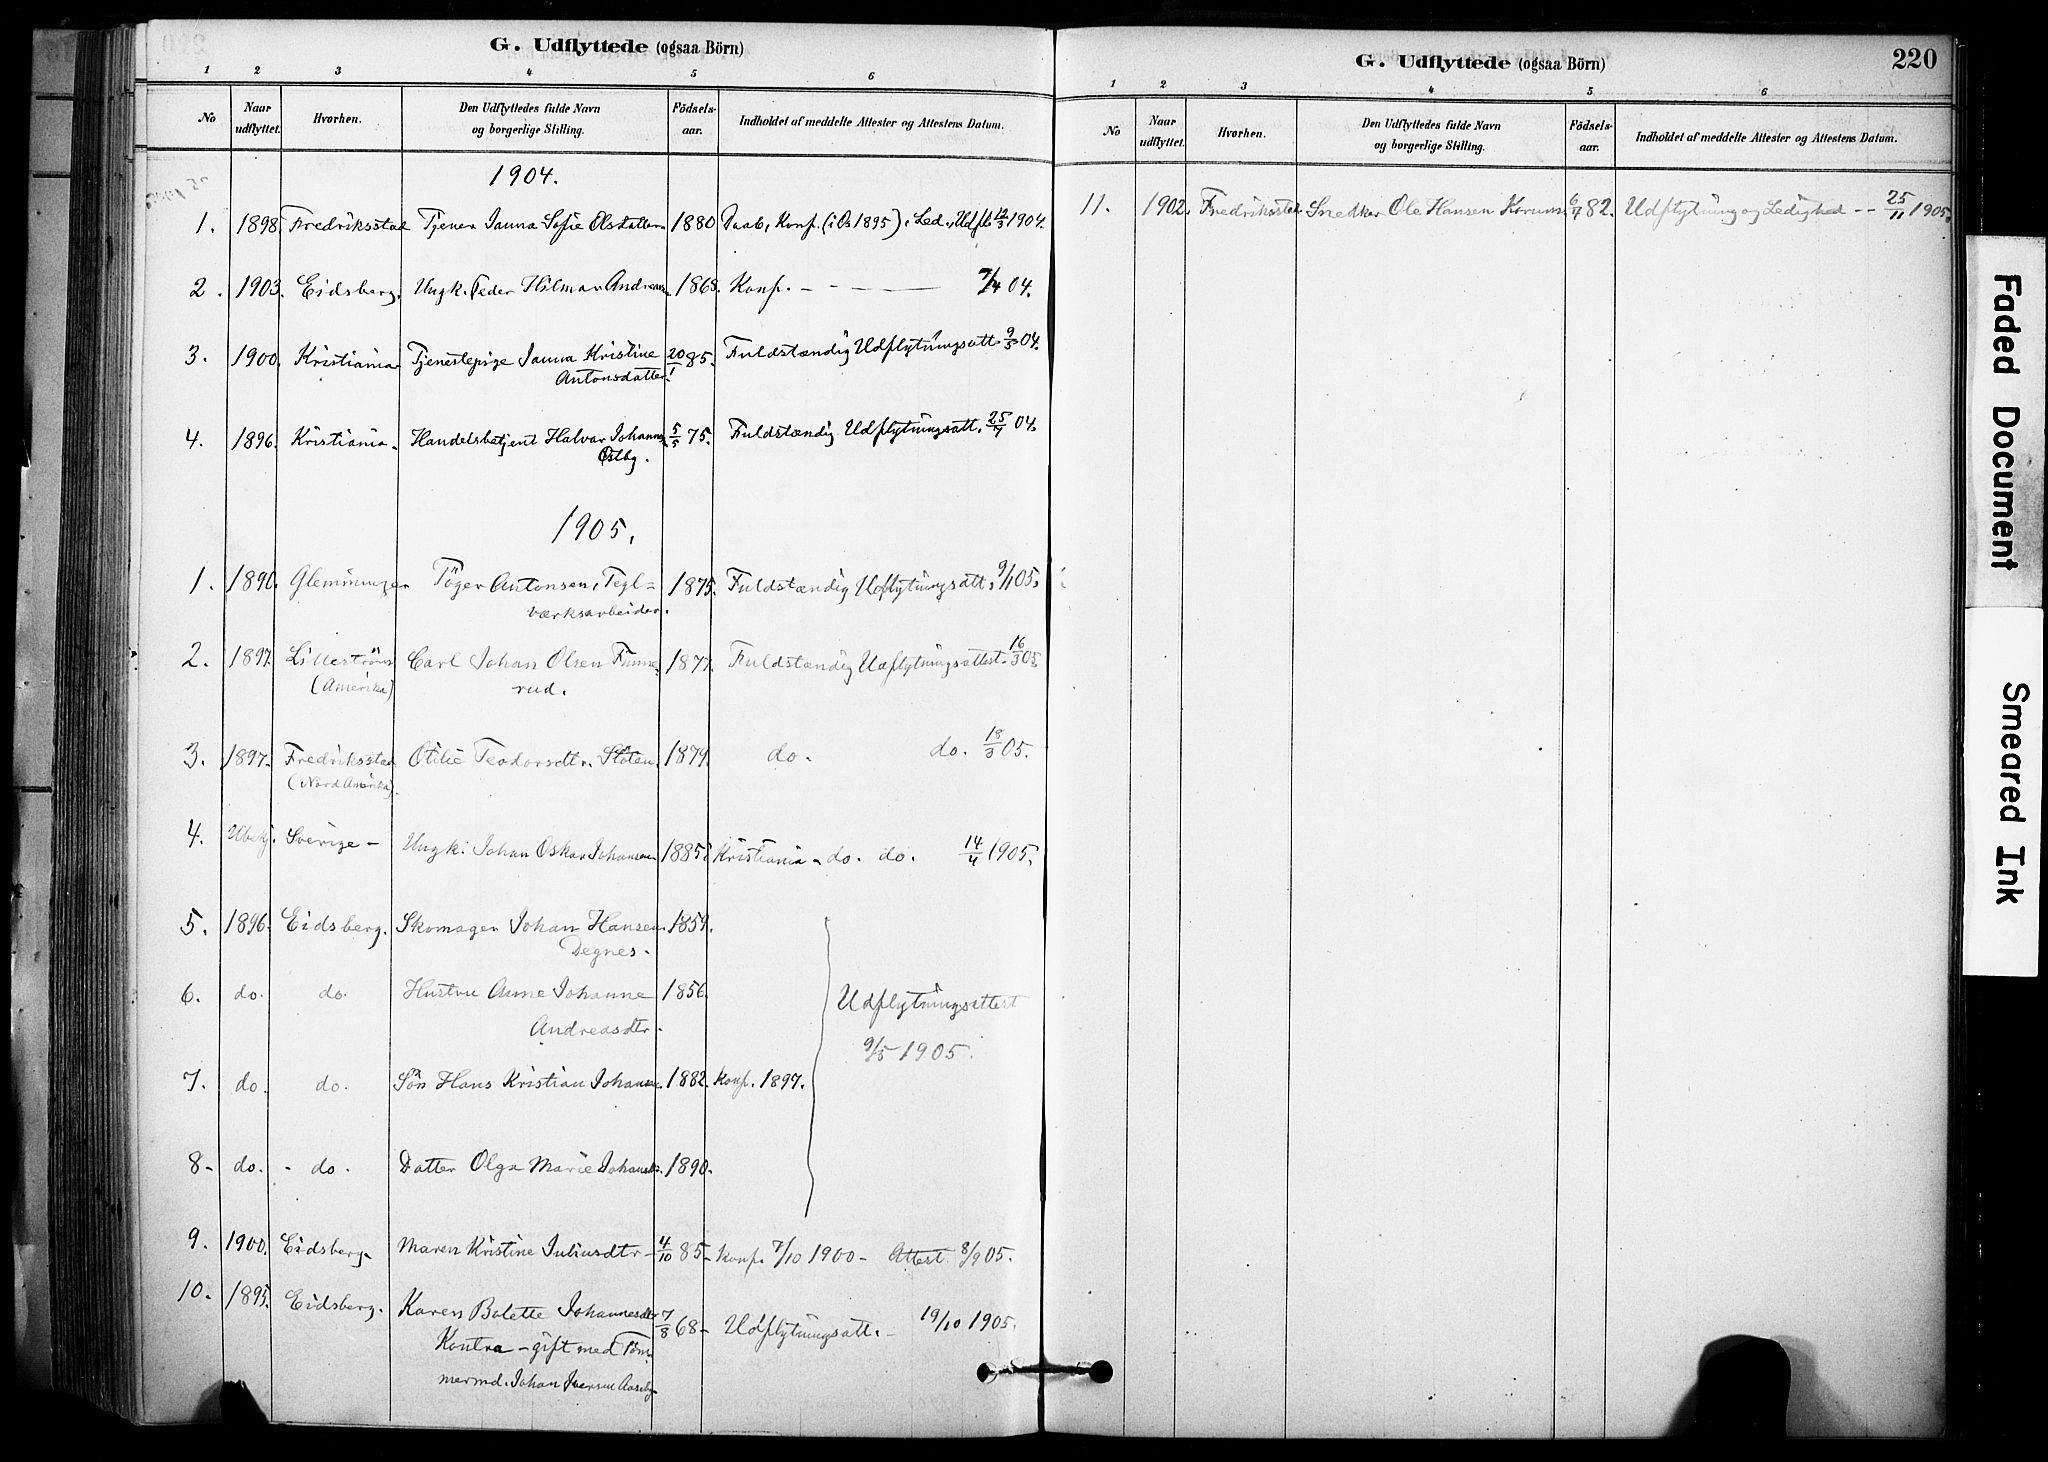 G. Udflyttede (ogsaa Börn)
1 2 3 4 5 6
No Naar udflyttet. Hvorhen. Den Udflyttedes fulde Navn og borgerlige Stilling. Födsels-aar. Indholdet af meddelte Attester og Attestens Datum.
1904.
1. 1898. Fredriksstad Tjener Janna Sofie Olsdatter 1880 Daab, Konf. (i Øs 1895), Led., Udfl. 12/3 1904.
2. 1903. Eidsberg. Ungk. Peder Hilmar Andreas 1868. Konf. - - - 7/4 04.
3. 1900. Kristiania Tjenestepige Janna Kristine 20/1 85. Fuldstændig Udflytningsatt. 9/5 04.
Antonsdatter.
4. 1896. Kristiania. Handelsbetjent Halvar Johanns 5/5 75. Fuldstændig Udflytningsatt. 25/7 04.
Østby.
1905.
1. 1890. Glemminge Töger Antonsen, Tegl- 1875. Fuldstændig Udflytningsatt. 9/1 05.
værksarbeider.
2. 1897. Lilleström Carl Johan Olsen Finne- 1877. Fuldstændig Udflytningsattest. 16/3 05
(Amerika) rud.
3. 1897. Fredriksstad Otilie Teodorsdtr. Slöten. 1879. do. do. 18/3 05.
(Nord Amerika).
4. Ubekj. Sverige - Ungk. Johan Oskar Johansen 1885. Kristiania - do. do. 14/4 1905.
5. 1896. Eidsberg. Skomager Johan Hansen 1859.
Degnes.
6. do. do. Hustru Anne Johanne 1856. Udflytningsattest
Andreasdtr. 9/5 1905.
7. do. do. Sön Hans Kristian Johansen. 1882. Konf. 1897.
8. do. do. Datter Olga Marie Johansdtr. 1890.
9. 1900. Eidsberg. Maren Kristine Juliusdtr 4/10 85. Konf. 7/10 1900 - Attest 8/9 05.
10. 1895. Eidsberg. Karen Bolette Johannesdtr 7/8 68 - Udflytningsatt. - 19/10 1905.
Kontra - gift med Töm-
mermd. Johan Iversen Aaseby
G. Udflyttede (ogsaa Börn) 220
1 2 3 4 5 6
No Naar udflyttet. Hvorhen. Den Udflyttedes fulde Navn og borgerlige Stilling. Födsels-aar. Indholdet af meddelte Attester og Attestens Datum.
11. 1902. Fredriksstad Snedker Ole Hansen Korum. 6/7 82. Udflytning og Ledighed - - 25/11 1905.
Faded Document
Smeared Ink